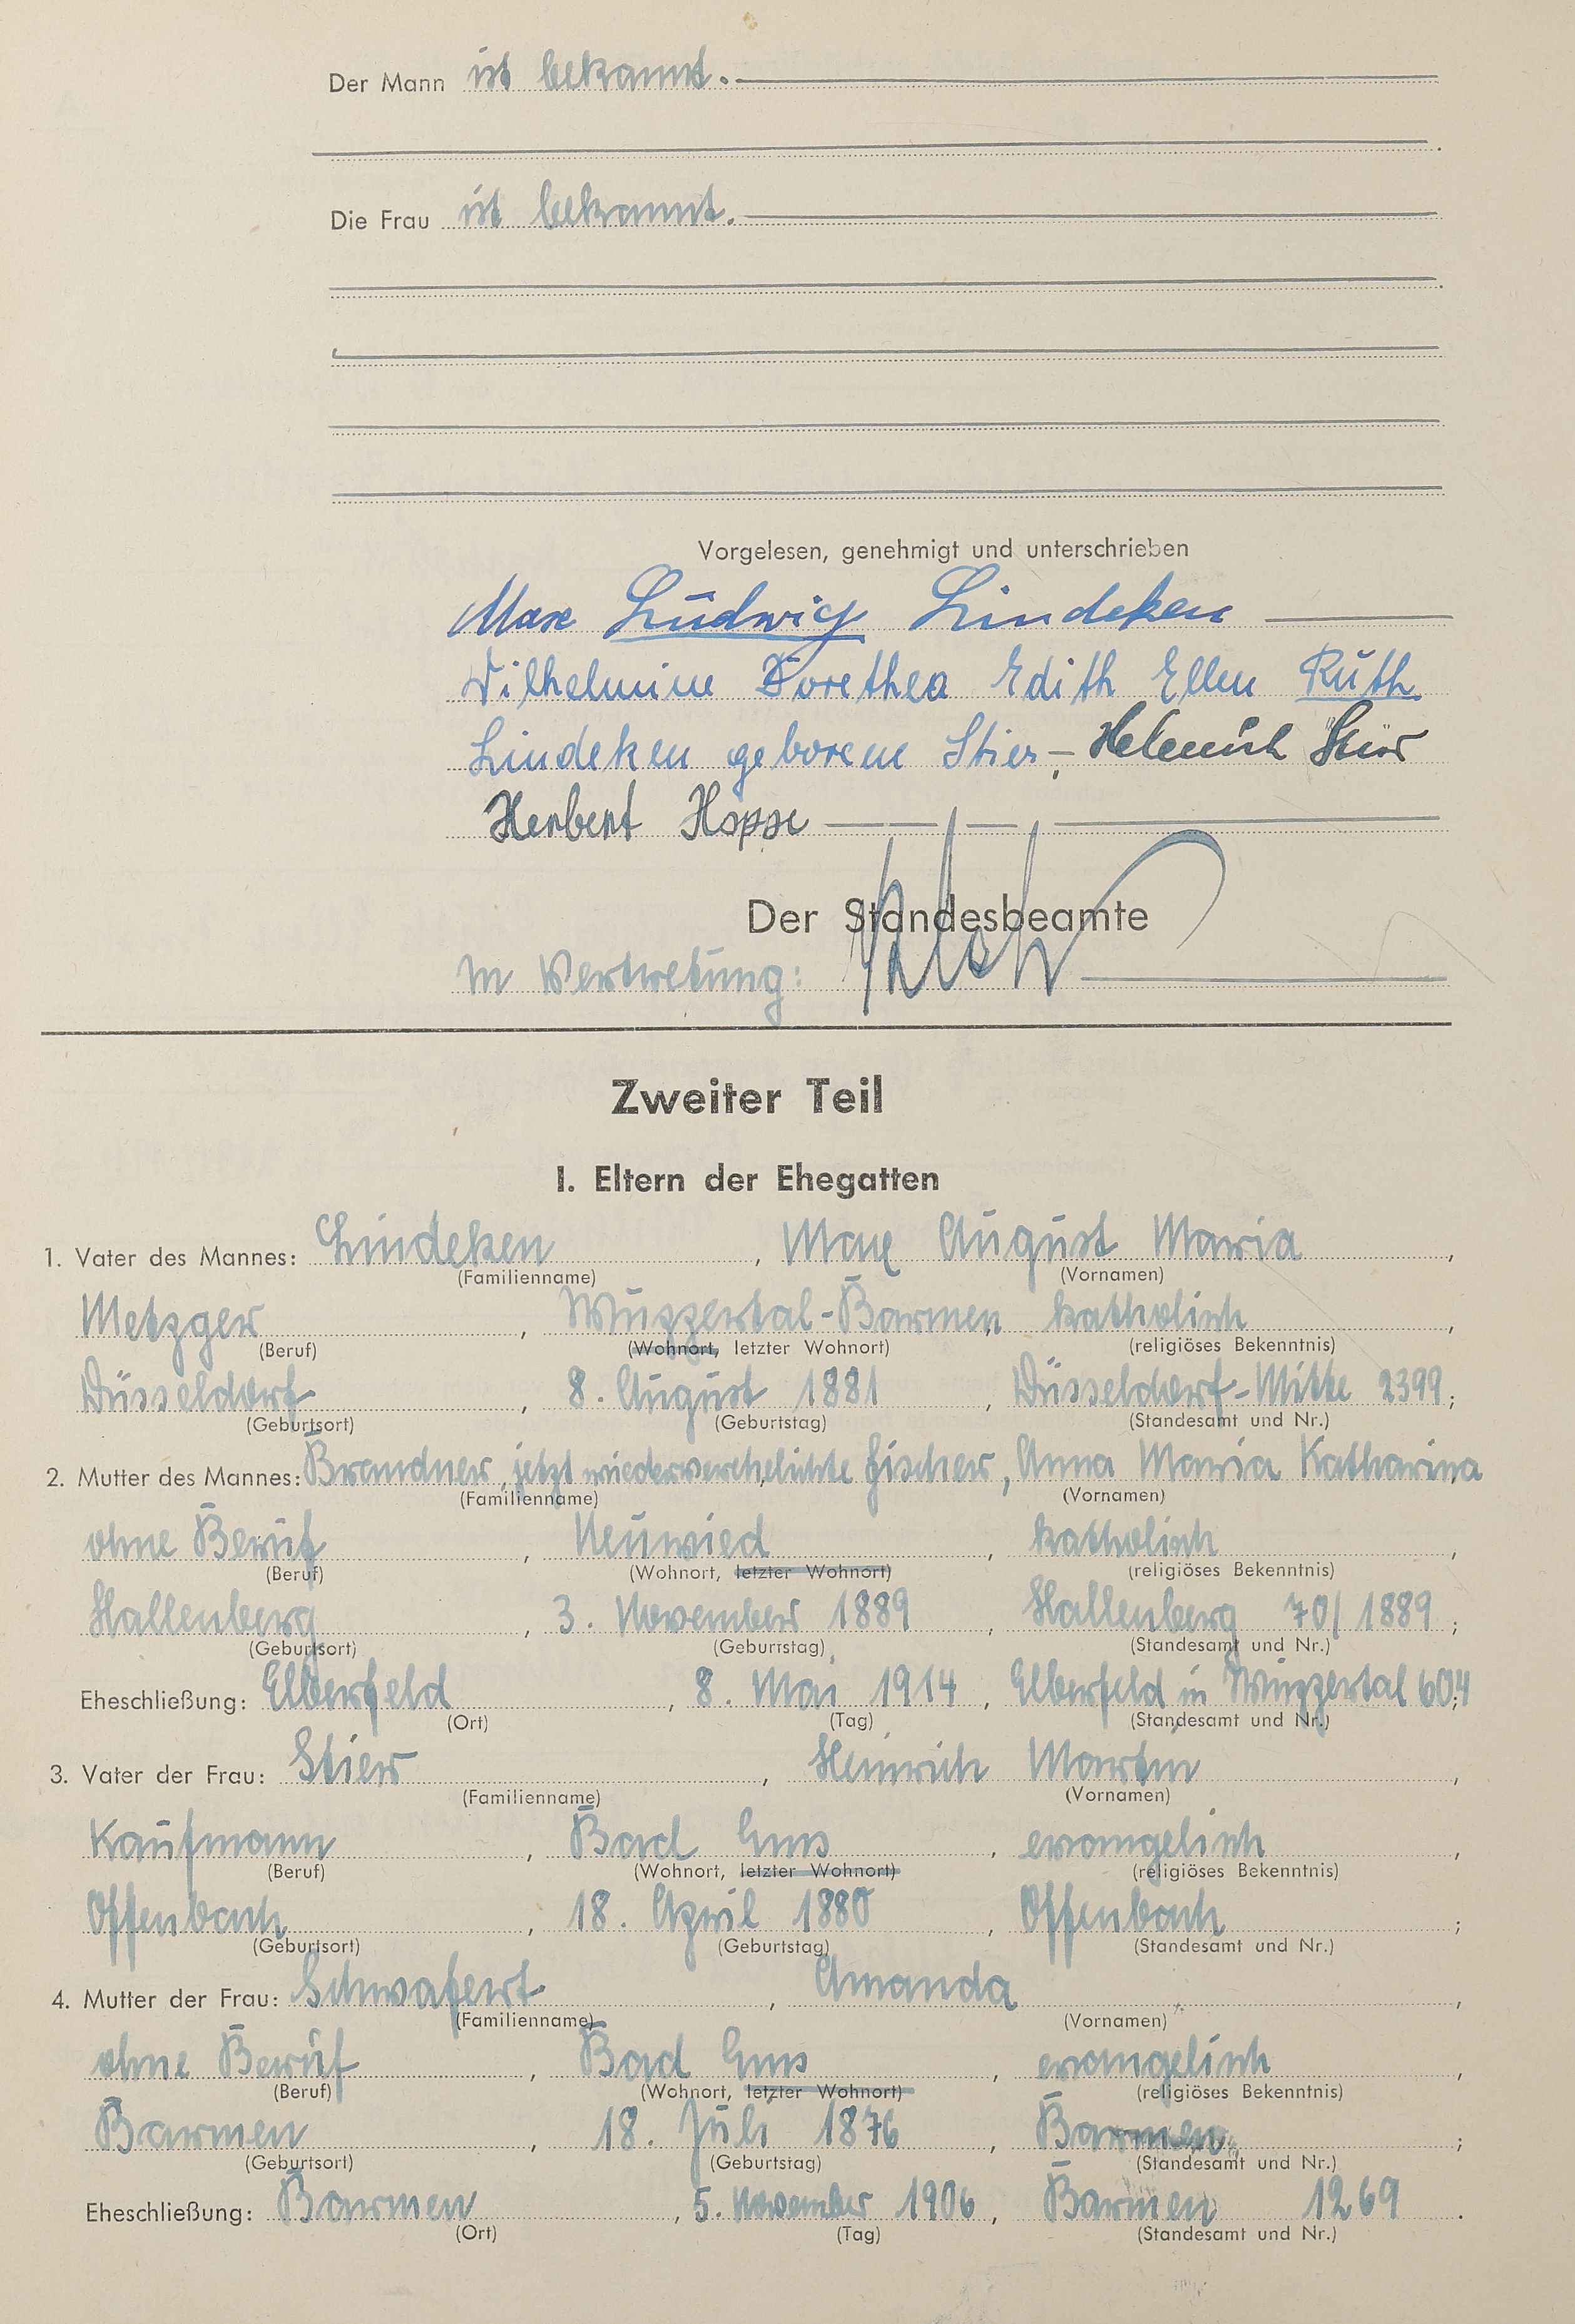 Der Mann ist bekannt.
Die Frau ist bekannt.
Vorgelesen, genehmigt und unterschrieben
Max Ludwig Lindeken
Wilhelmine Dorothea Edith Ellen Ruth
Lindeken geborene Stier, Helmuth Stier
Herbert Hoppe
Der Standesbeamte
In Vertretung:
Zweiter Teil
I. Eltern der Ehegatten
1. Vater des Mannes: Lindeken, Max August Maria,
(Familienname) (Vornamen)
Metzger, Wuppertal-Barmen, katholisch,
(Beruf) (Wohnort, letzter Wohnort) (religiöses Bekenntnis)
Düsseldorf, 8. August 1881, Düsseldorf-Mitte 2399;
(Geburtsort) (Geburtstag) (Standesamt und Nr.)
2. Mutter des Mannes: Brandner, jetzt wiederverehelichte Fischer, Anna Maria Katharina,
(Familienname) (Vornamen)
ohne Beruf, Neuwied, katholisch,
(Beruf) (Wohnort, letzter Wohnort) (religiöses Bekenntnis)
Hallenberg, 3. November 1889, Hallenberg 70/1889;
(Geburtsort) (Geburtstag) (Standesamt und Nr.)
Eheschließung: Elberfeld, 8. Mai 1914, Elberfeld in Wuppertal 604;
(Ort) (Tag) (Standesamt und Nr.)
3. Vater der Frau: Stier, Heinrich Martin,
(Familienname) (Vornamen)
Kaufmann, Bad Ems, evangelisch,
(Beruf) (Wohnort, letzter Wohnort) (religiöses Bekenntnis)
Offenbach, 18. April 1880, Offenbach;
(Geburtsort) (Geburtstag) (Standesamt und Nr.)
4. Mutter der Frau: Schwafert, Amanda,
(Familienname) (Vornamen)
ohne Beruf, Bad Ems, evangelisch,
(Beruf) (Wohnort, letzter Wohnort) (religiöses Bekenntnis)
Barmen, 18. Juli 1876, Barmen;
(Geburtsort) (Geburtstag) (Standesamt und Nr.)
Eheschließung: Barmen, 5. November 1906, Barmen 1269.
(Ort) (Tag) (Standesamt und Nr.)